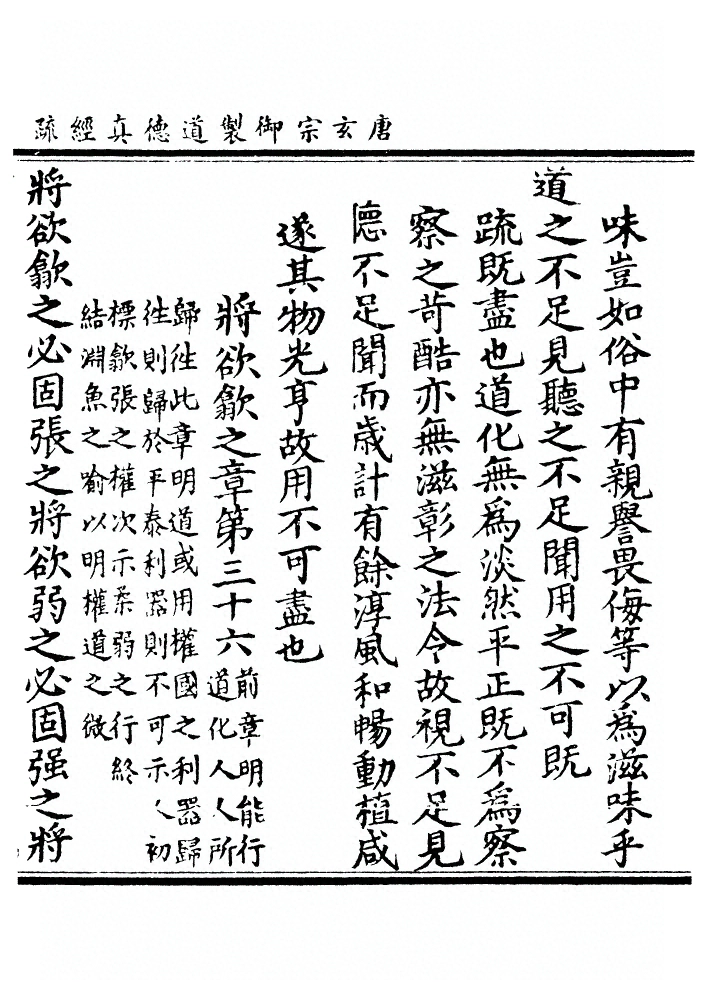 唐玄宗御製道德真經疏
味豈如俗中有親譽畏侮等以為滋味乎
道之不足見聽之不足聞用之不可既
疏既盡也道化無為淡然平正既不為察
察之苛酷亦無滋彰之法令故視不足見
悳不足聞而歲計有餘淳風和暢動植咸
遂其物光亨故用不可盡也
將欲歙之章第三十六
前章明能行
道化人人所
歸往此章明道或用權國之利器歸
往則歸於平泰利器則不可示人初
標歙張之權次示柔弱之行終
結淵魚之喻以明權道之微
將欲歙之必固張之將欲弱之必固强之將